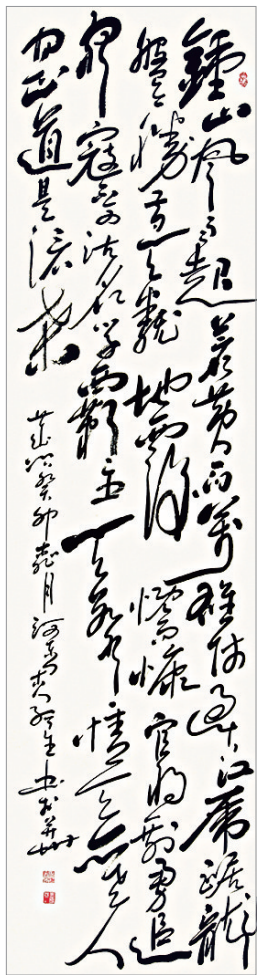 鍾山風雨起蒼黄百萬雄師過大江虎踞龍
盤今勝昔天翻地覆慨而慷宜將剩勇追
窮寇不可沽名學霸王天若有情天亦老人
間正道是滄桑
癸卯 月河東 生書於